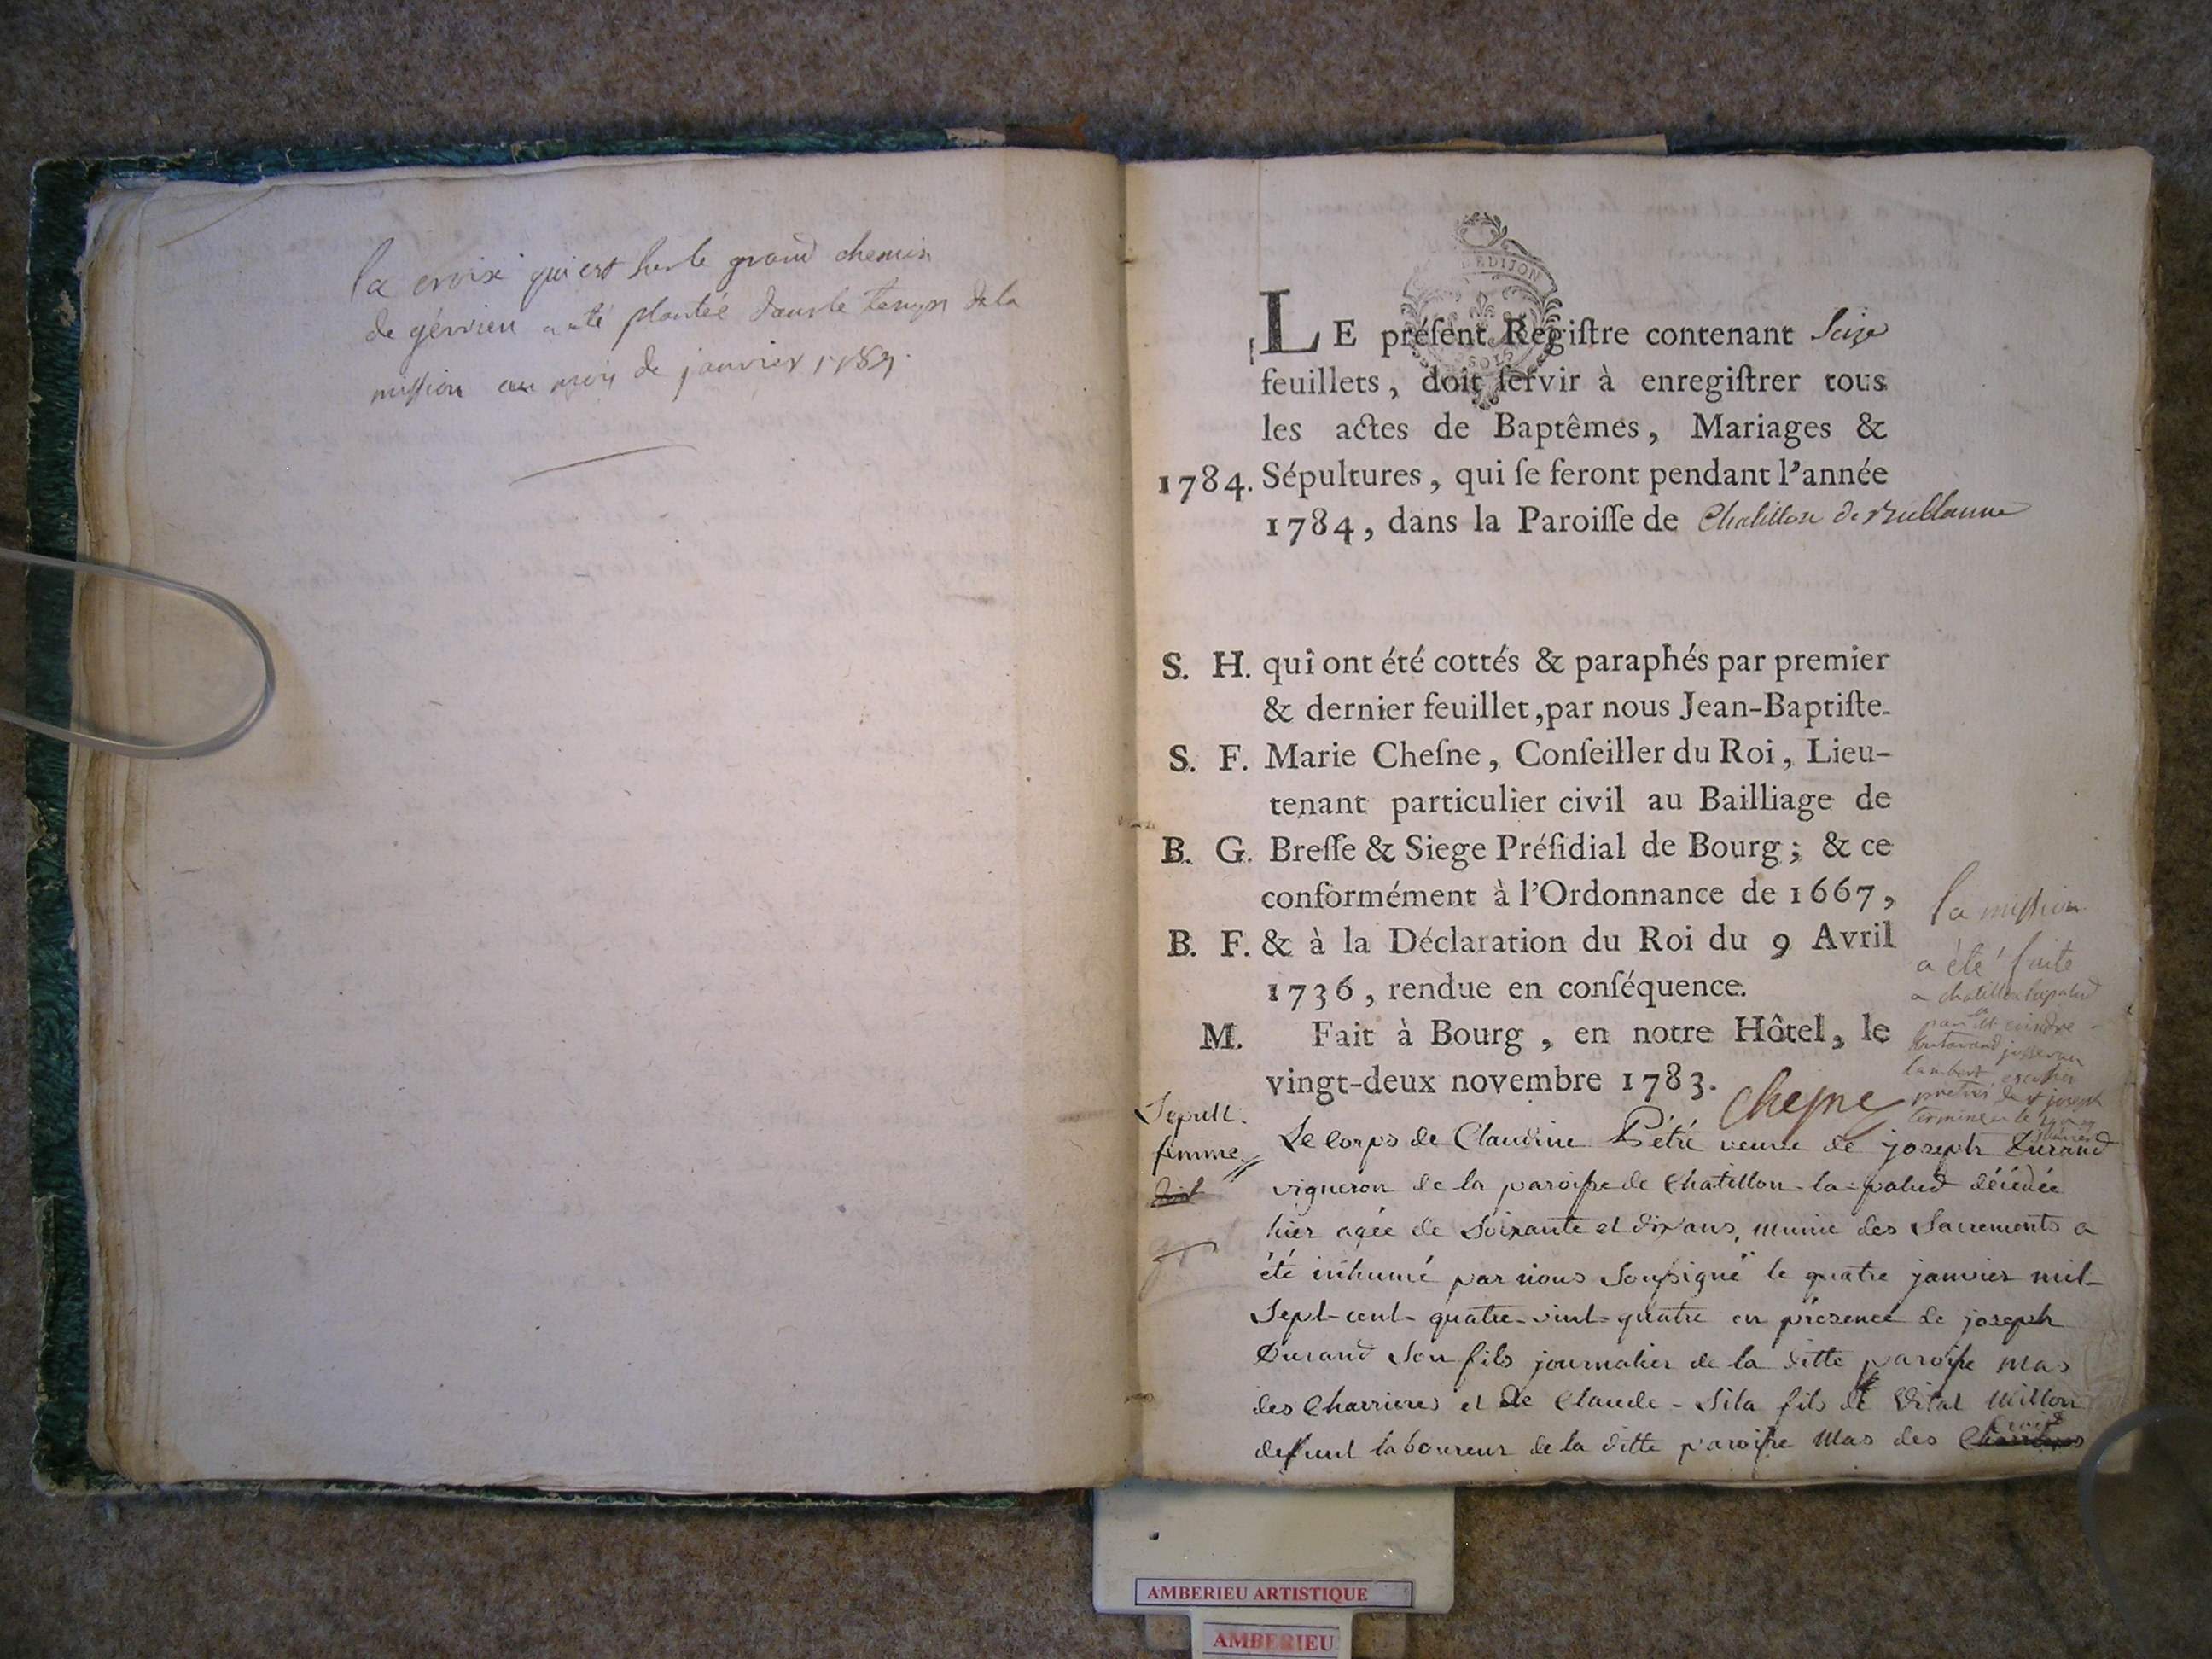 la croix qui est sur le grand chemin
de gévrieu a été plantée dans le temps de la
mission au mois de janvier 1784
DE DIJON
LE préſent Regiſtre contenant Seize
feuillets, doit ſervir à enregiſtrer tous
les actes de Baptêmes, Mariages &
1784. Sépultures, qui ſe feront pendant l'année
1784, dans la Paroiſſe de Chatillon de
S. H. qui ont été cottés & paraphés par premier
& dernier feuillet, par nous Jean-Baptiſte-
S. F. Marie Cheſne, Conſeiller du Roi, Lieu-
tenant particulier civil au Bailliage de
B. G. Breſſe & Siege Préſidial de Bourg; & ce
conformément à l'Ordonnance de 1667,
B. F. & à la Déclaration du Roi du 9 Avril
1736, rendue en conſéquence.
M. Fait à Bourg, en notre Hôtel, le
vingt-deux novembre 1783.
Chesne
la mission
a été faite
a chatillon lapalud
lambert
prêtres de st joseph
terminée le
Sepult.
femme
Le corps de Claudine Pétré veuve de joseph Durand
vigneron de la paroisse de Chatillon-la-palud décédée
hier agée de Soixante et dix ans, munie des Sacrements a
été inhumé par nous Soussigné le quatre janvier mil-
Sept-cent-quatre-vint-quatre en présence de joseph
Durand Son fils journalier de la ditte paroisse Mas
des Charrieres et de Claude-Sila fils de Vital Millon
defunt laboureur de la ditte paroisse Mas des
AMBERIEU ARTISTIQUE
AMBERIEU